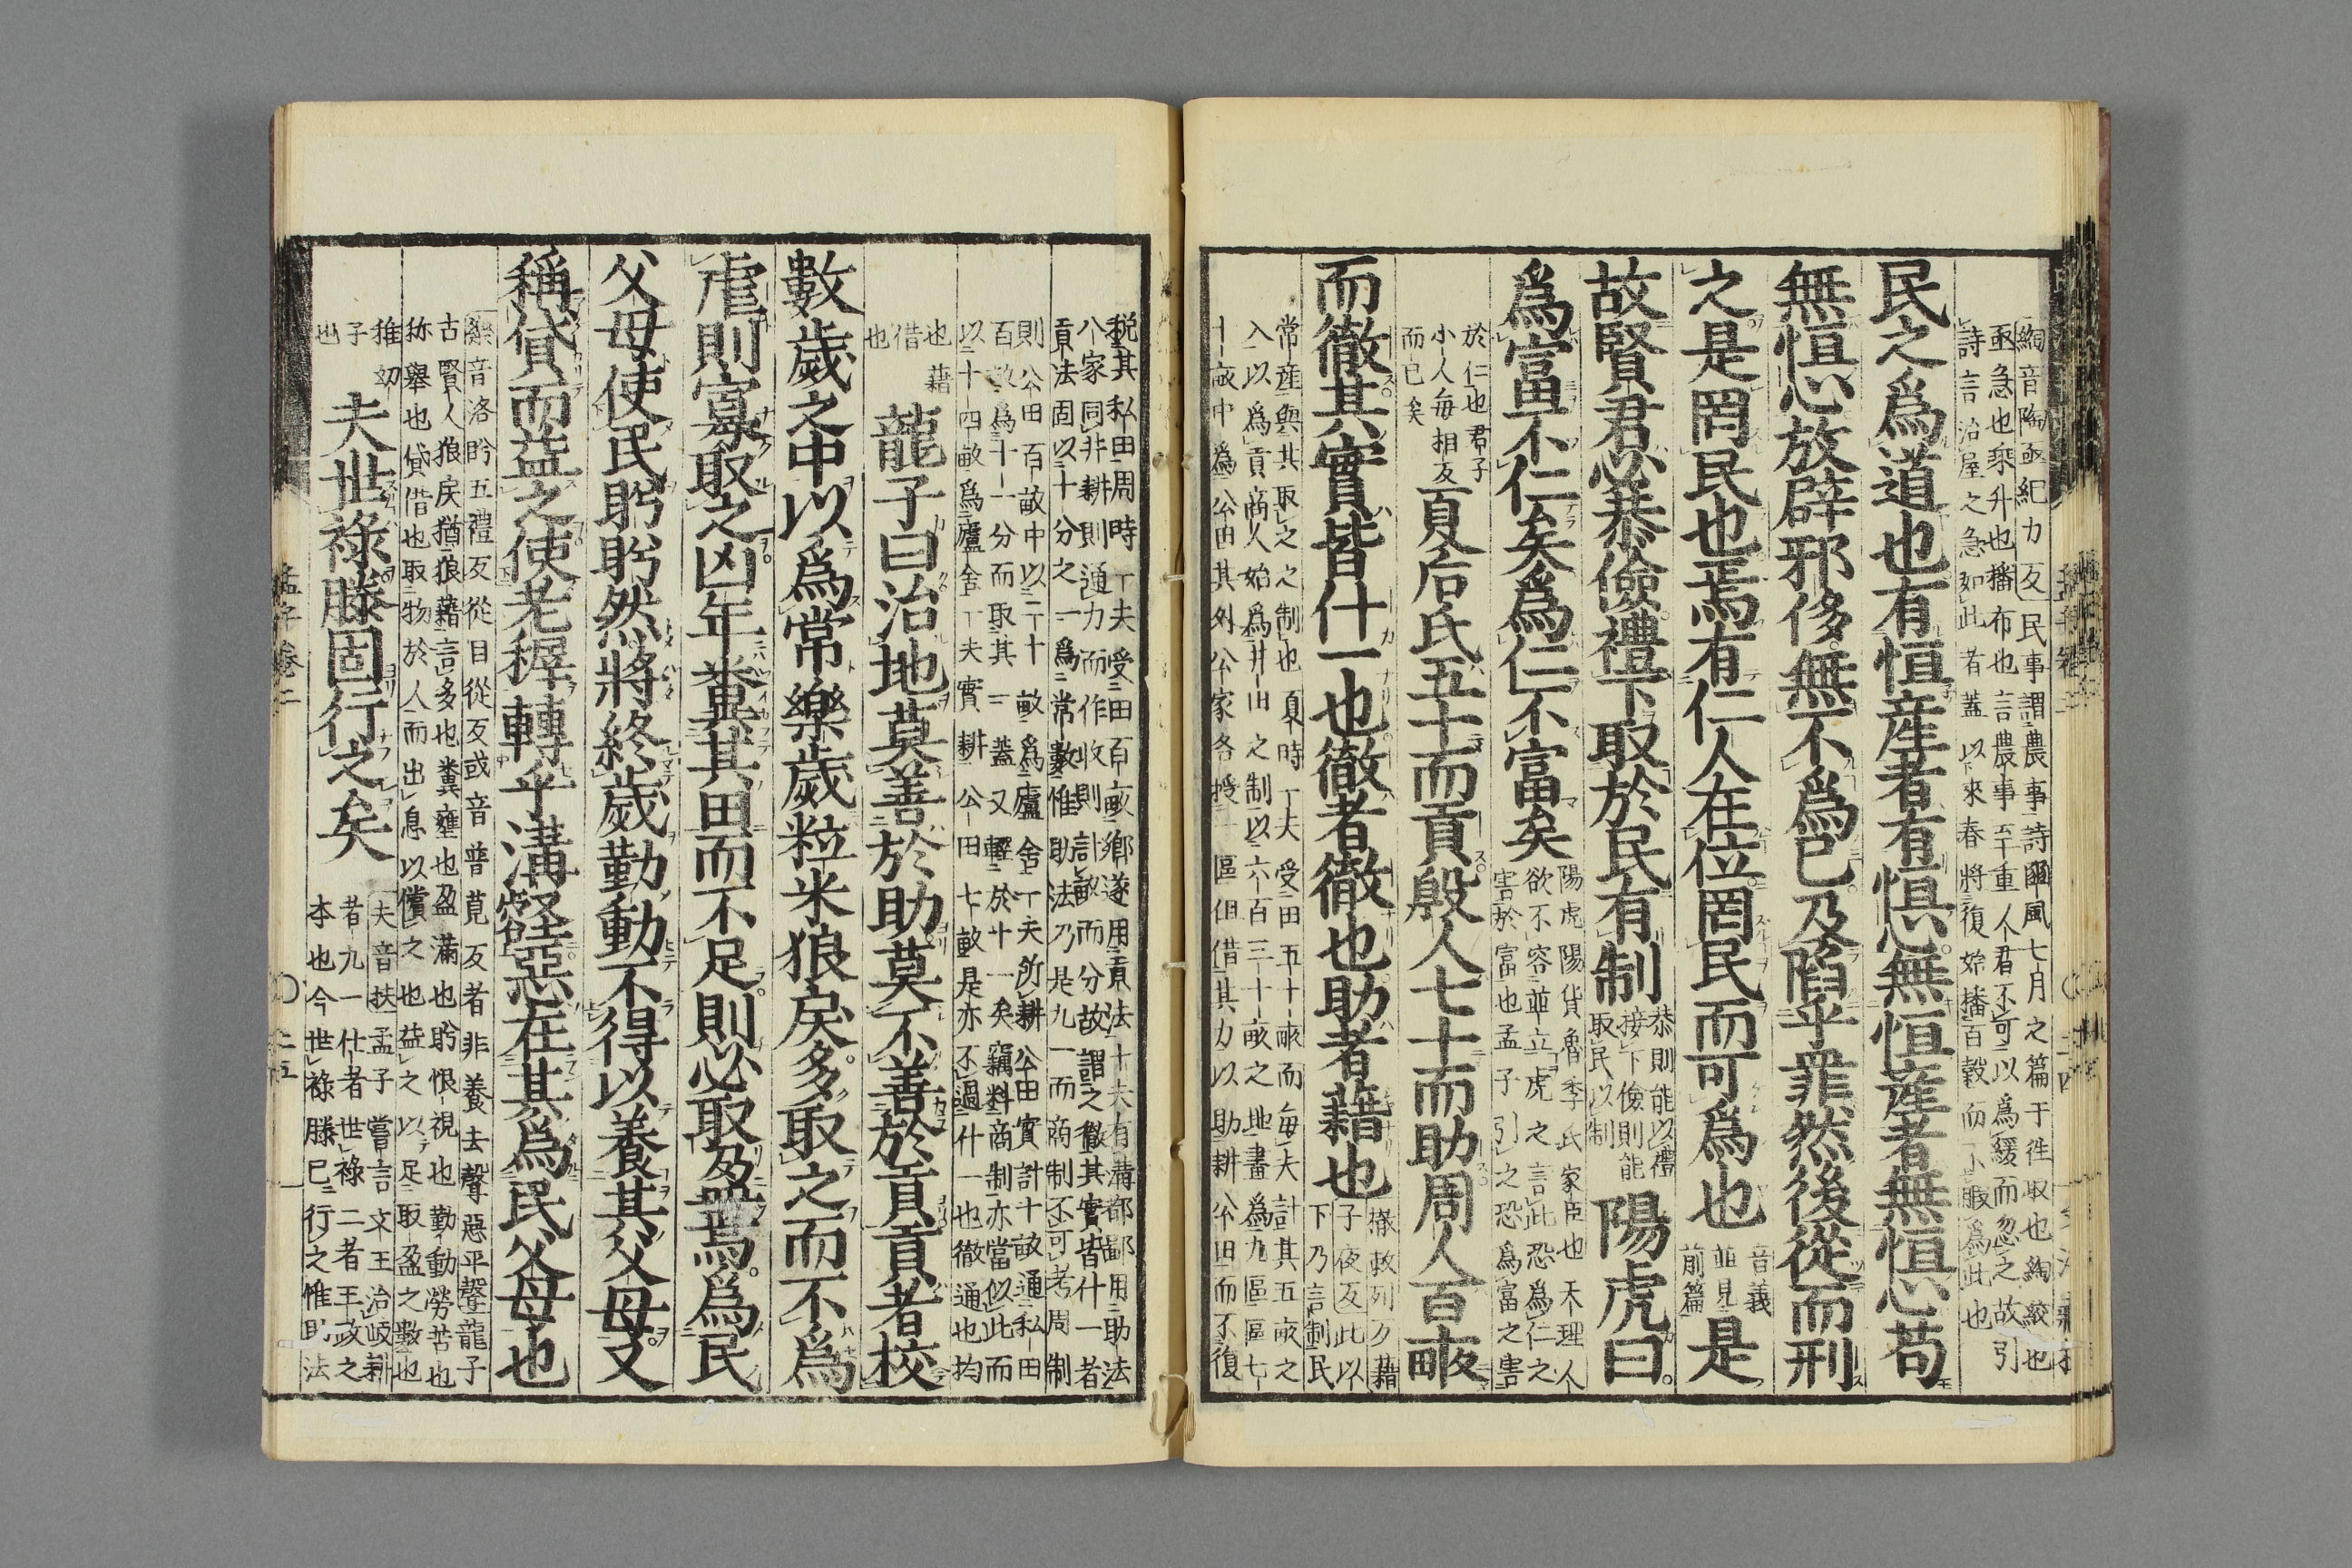 綯音陶亟紀力反民事謂農事詩豳風七月之篇于徃取也綯絞也
亟急也乘升也播布也言農事至重人君不可以爲緩而忽之故引
詩言治屋之急如此者蓋以來春將復始播百穀而不暇爲此也
民之爲道也有恒産者有恒心無恒産者無恒心苟
無恒心放辟邪侈無不爲已及陷乎罪然後從而刑
之是罔民也焉有仁人在位罔民而可爲也音義並見前篇是
故賢君必恭儉禮下取於民有制恭則能以禮接下儉則能取民以制陽虎曰
爲富不仁矣爲仁不富矣陽虎陽貨魯季氏家臣也天理人欲不容並立虎之言此恐爲仁之害於富也孟子引之恐爲富之害
於仁也君子小人每相反而已矣夏后氏五十而貢殷人七十而助周人百畝
而徹其實皆什一也徹者徹也助者藉也徹敕列反藉子夜反此以下乃言制民
常産與其取之之制也夏時一夫受田五十畝而每夫計其五畝之
入以爲貢商人始爲井田之制以六百三十畝之地畫爲九區區七
十畝中爲公田其外八家各授一區但借其力以助耕公田而不復
稅其私田周時一夫受田百畝鄉遂用貢法十夫有溝都鄙用助法
八家同井耕則通力而作收則計畝而分故謂之徹其實皆什一者
貢法固以十分之一爲常數惟助法乃是九一而商制不可考周制
則公田百畝中以二十畝爲廬舍一夫所耕公田實計十畝通私田
百畝爲十一分而取其一蓋又輕於十一矣竊料商制亦當似此而
以十四畝爲廬舍一夫實耕公田七畝是亦不過什一也徹通也均
也藉借也龍子曰治地莫善於助莫不善於貢貢者校
數歲之中以爲常樂歲粒米狼戾多取之而不爲
虐則寡取之凶年糞其田而不足則必取盈焉爲民
父母使民盻盻然將終歲勤動不得以養其父母又
稱貸而益之使老稺轉乎溝壑惡在其爲民父母也
樂音洛盻五禮反從目從兮或音普莧反者非養去聲惡平聲龍子
古賢人狼戾猶狼藉言多也糞壅也盈滿也盻恨視也勤動勞苦也
稱舉也貸借也取物於人而出息以償之也益之以足取盈之數也
稚幼子也夫世祿滕固行之矣夫音扶孟子嘗言文王治岐耕者九一仕者世祿二者王政之本也今世祿滕已行之惟助法
孟子卷二
〇二五